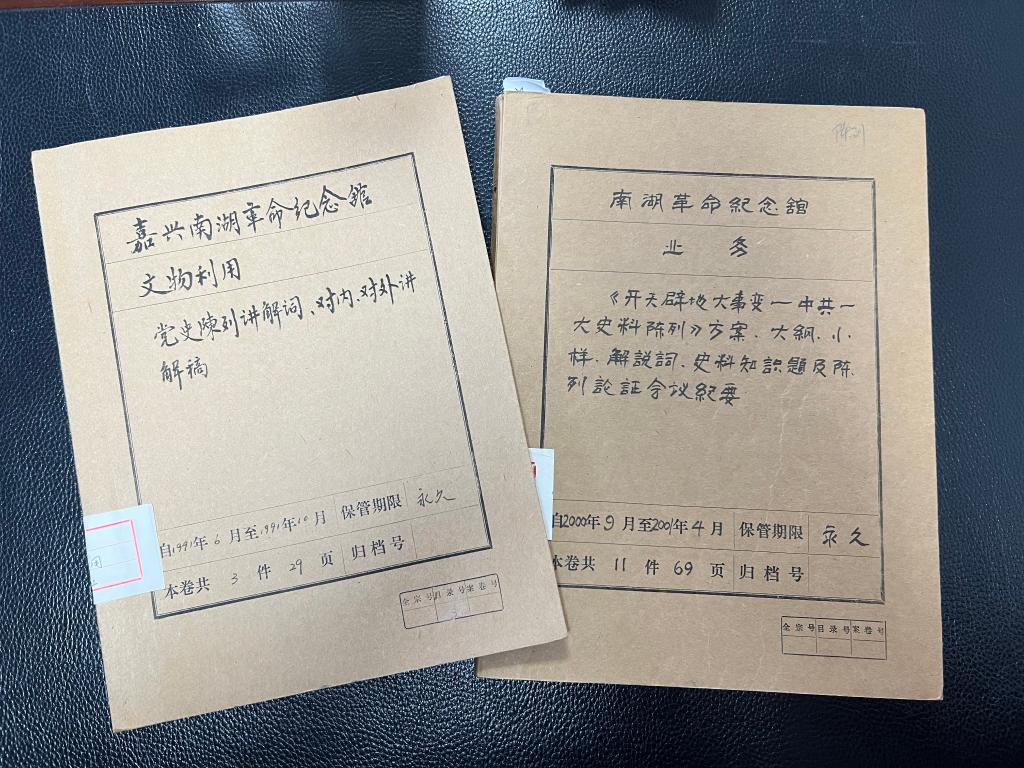 嘉兴南湖革命纪念舘
文物利用
党史陳列讲解词、对内、对外讲
解稿
自1991年6月至1991年10月 保管期限 永久
本卷共 3 件 29 页 归档号
全宗号 目录号 案卷号
陈列
南湖革命紀念舘
业务
《开天辟地大事变一中共一
大史料陈列》方案、大綱、小
样、解説詞、史料知識題及陈
列論証会议紀要
自2000年9月至2001年4月 保管期限 永久
本卷共 11 件 69 页 归档号
全宗号 目录号 案卷号